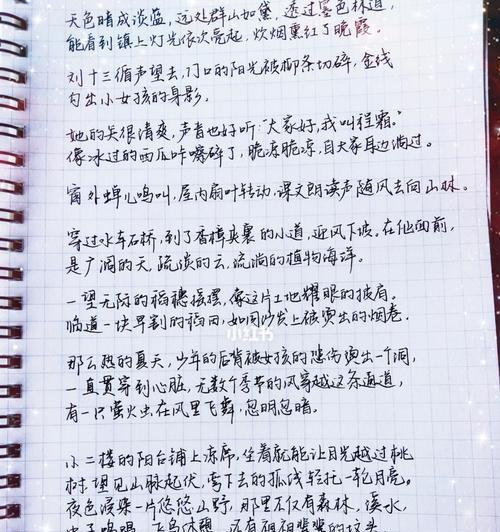 天色暗成淡蓝，远处群山如黛，透过墨色林道，
能看到镇上灯光依次亮起，炊烟熏红了晚霞。
刘十三循声望去，门口的阳光被柳条切碎，金线
勾出小女孩的身影。
她的笑很清爽，声音也好听："大家好，我叫程霜。"
像冰过的西瓜咔嚓碎了，脆凉脆凉，自大家耳边淌过。
窗外蝉儿鸣叫，屋内扇叶转动，课文朗读声随风去向山林。
穿过水车石桥，到了香樟夹裹的小道，迎风下坡。在他面前，
是广阔的天，疏淡的云，流淌的植物海洋。
一望无际的稻穗摇摆，像这片土地耀眼的披肩。
临道一块早割的稻田，如同沙发上被烫出的烟疤。
那么热的夏天，少年的后背被女孩的悲伤烫出一个洞，
一直贯穿到心脏，无数个季节的风穿越这条通道，
有一只萤火虫在风里飞舞，忽明忽暗。
小二楼的阳台铺上凉席，坐着就能让目光越过桃
树望见山脉起伏，弯下去的弧线轻托一轮月亮。
夜色浸染一片悠悠山野，那里不仅有森林，溪水，
虫子鸣唱，飞鸟休憩，还有祖祖辈辈的坟头
小红书